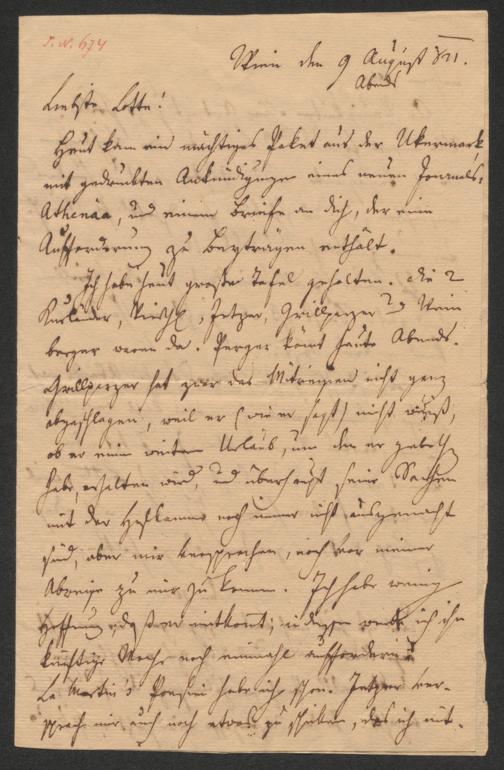 I. N. 674
Wien den 9 August 821.
Abends
Liebste Lotte!
Heut kam ein mächtiges Paket aus der Ukermark,
mit gedruckten Ankündigungen eines neuen Journals:
Athenäa, und einem Briefe an dich, der eine
Aufforderung zu Beyträgen enthält.
Ich habe heut große Tafel gehalten. Die 2
Kurländer, Jeitteles, Grillparzer und Wein
berger waren da. Perger kömt heute Abends.
Grillparzer hat zwar das Mitreisen nicht ganz
abgeschlagen, weil er (wie er sagt) nicht weiß,
ob er einen weitern Urlaub, um den er gebeth
habe, erhalten wird, und überhaupt seine Sachen
mit der Hofkammer noch immer nicht ausgemacht
sind, aber mir versprochen, noch vor meiner
Abreise zu mir zu kommen. Ich habe wenig
Hoffnung, daß er mitkomt; indessen werde ich ihn
künftige Woche noch einmahl auffordern.
La Martin's Poesien habe ich schon. Jetzer ver-
sprach mir auch noch etwas zu schicken, das ich mit-